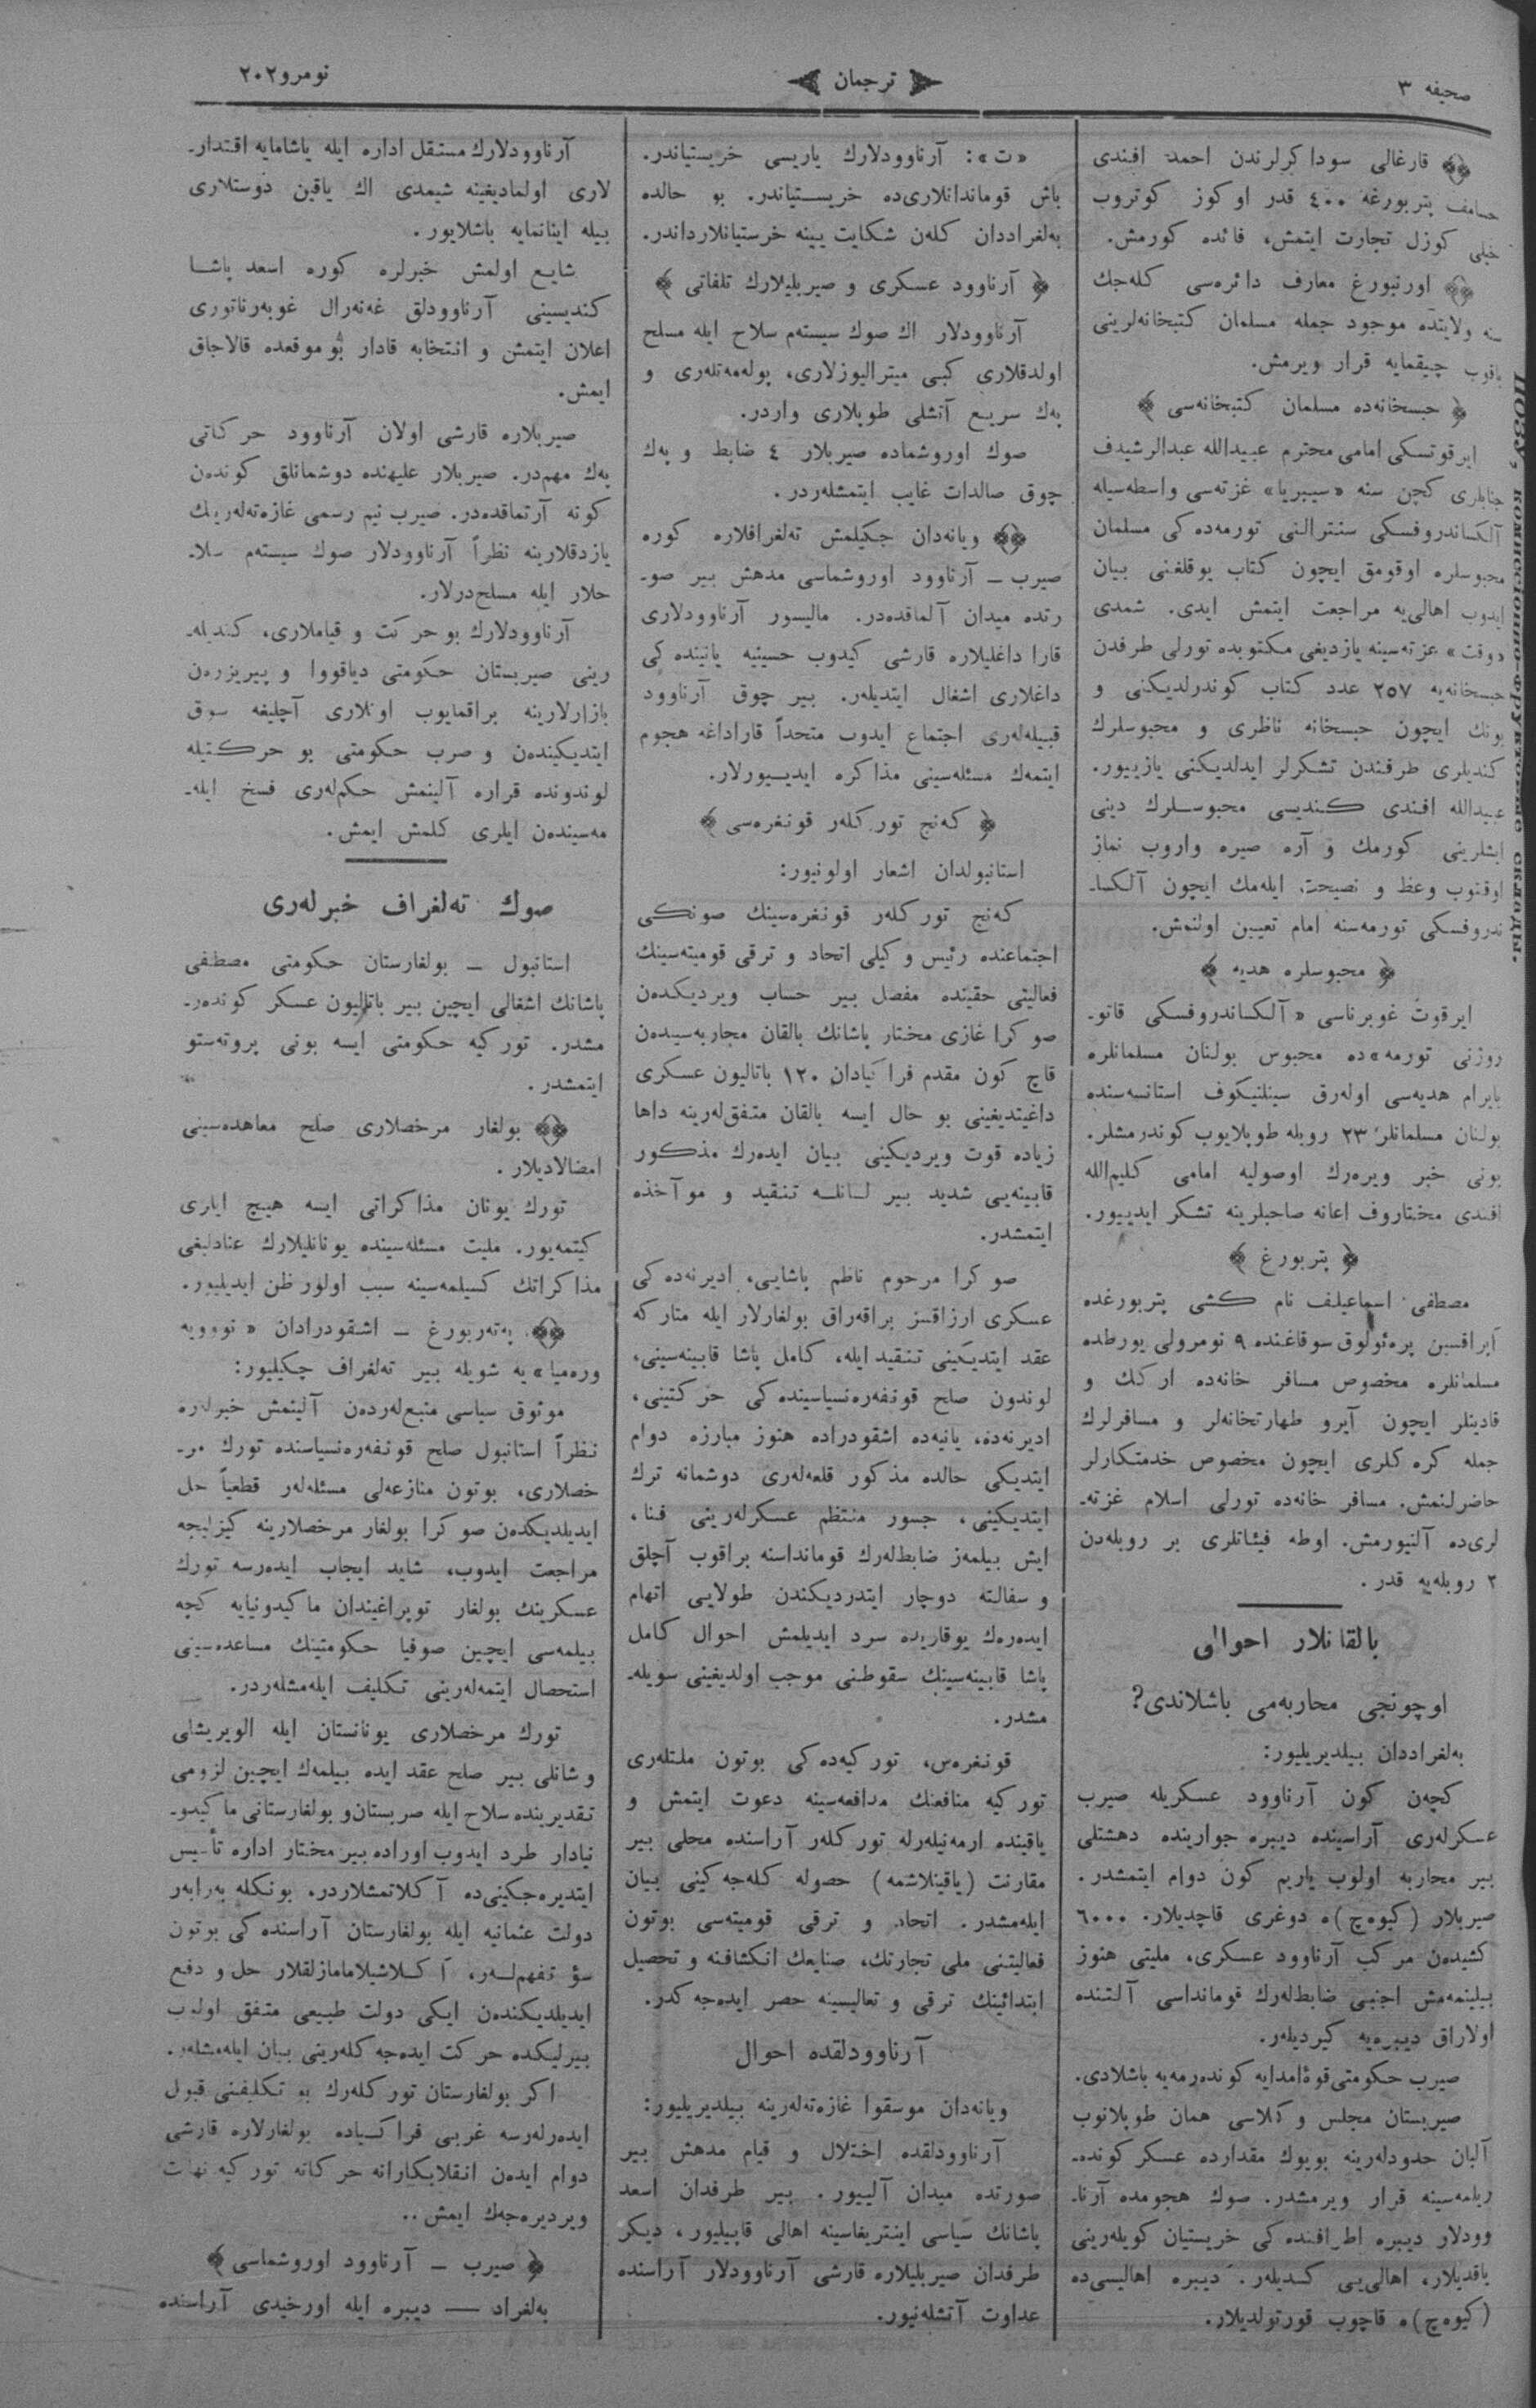 صحيفه ٣
ترجمان
نومرو٢٠٢
قارغالی سوداكرلرندن احمد افندی
حسامف پتربورغه ٤٠٠ قدر اوكوز كوتروب
خيلی كوزل تجارت ايتمش، فائده كورمش.
اورنبورغ معارف دائره‌سی كله‌جك
سنه ولايتده موجود جمله مسلمان كتبخانه‌لرينی
ياقوب چيقمايه قرار ويرمش.
﴿ حبسخانه‌ده مسلمان كتبخانه‌سی ﴾
ايرقوتسكی امامی محترم عبيدالله عبدالرشيدف
جنابلری كچن سنه «سيبريا» غزته‌سی واسطه‌سيله
آلكساندروفسكی سنترالنی تورمه‌ده كی مسلمان
محبوسلره اوقومق ايچون كتاب يوقلغنی بيان
ايدوب اهالی‌يه مراجعت ايتمش ايدی. شمدی
«وقت» غزته‌سينه يازديغی مكتوبده تورلی طرفدن
حبسخانه‌يه ٢٥٧ عدد كتاب كوندرلديكنی و
بونك ايچون حبسخانه ناظری و محبوسلرك
كنديلری طرفندن تشكرلر ايدلديكنی يازييور.
عبيدالله افندی كنديسی محبوسلرك دينی
ايشلرينی كورمك و آره صيره واروب نماز
اوقنوب وعظ و نصيحت ايله‌مك ايچون آلكسا-
ندروفسكی تورمه‌سنه امام تعيين اولنمش.
﴿ محبوسلره هديه ﴾
ايرقوت غوبرناسی «آلكساندروفسكی قاتو-
روژنی تورمه»ده محبوس بولنان مسلمانلره
بايرام هديه‌سی اوله‌رق سينلنيكوف استانسه‌سنده
بولنان مسلمانلر ٢٣ روبله طوپلايوب كوندرمشلر.
بونی خبر ويره‌رك اوصوليه امامی كليم‌الله
افندی مختاروف اعانه صاحبلرينه تشكر ايدييور.
﴿ پتربورغ ﴾
مصطفی اسماعيلف نام كشی پتربورغده
آپراقسين پره‌ئولوق سوقاغنده ٩ نومرولی يورطده
مسلمانلره مخصوص مسافر خانه‌ده ارك و
قادينلر ايچون آيرو طهارتخانه‌لر و مسافرلرك
جمله كره‌كلری ايچون مخصوص خدمتكارلر
حاضرلنمش. مسافر خانه‌ده تورلی اسلام غزته‌-
لری‌ده آلنيورمش. اوطه فيئاتلری بر روبله‌دن
٢ روبله‌يه قدر.
بالقانلار احوالی
اوچونجی محاربه‌می باشلاندی؟
به‌لغراددان بيلديريليور:
كچه‌ن كون آرناوود عسكريله صيرب
عسكرله‌ری آراسينده ديبره جوارينده دهشتلی
بير محاربه اولوب ياريم كون دوام ايتمشدر.
صيربلار (كيوه‌چ)ه دوغری قاچديلار. ٦٠٠٠
كشيده‌ن مركب آرناوود عسكری، مليتی هنوز
بيلينمه‌مش اجنبی ضابطله‌رك قومانداسی آلتنده
اولاراق ديبره‌يه كيرديله‌ر.
صيرب حكومتی قوۀ‌امدايه كونده‌رمه‌يه باشلادی.
صيربستان مجلس وكلاسی همان طوپلانوب
آلبان حدودله‌رينه بويوك مقدارده عسكر كونده-
ريلمه‌سينه قرار ويرمشدر. صوك هجومده آرنا-
وودلار ديبره اطرافنده كی خريستيان كويله‌رينی
ياقديلار، اهالی‌يی كسديله‌ر. ديبره اهاليسی‌ده
(كيوه‌چ)ه قاچوب قورتولديلار.
«ت»: آرناوودلارك ياريسی خريستياندر.
باش قوماندانلاری‌ده خريستياندر. بو حالده
به‌لغراددان كله‌ن شكايت يينه خرستيانلارداندر.
﴿ آرناوود عسكری و صيربليلارك تلفاتی ﴾
آرناوودلار اك صوك سيسته‌م سلاح ايله مسلح
اولدقلاری كبی ميتراليوزلاری، پوله‌مه‌تله‌ری و
په‌ك سريع آتشلی طوپلاری واردر.
صوك اوروشماده صيربلار ٤ ضابط و په‌ك
چوق صالدات غايب ايتمشله‌ردر.
ويانه‌دان جكيلمش ته‌لغرافلاره كوره
صيرب ــ آرناوود اوروشماسی مدهش بير صو-
رتده ميدان آلماقده‌در. ماليسور آرناوودلاری
قارا داغليلاره قارشی كيدوب حسينيه يانينده كی
داغلاری اشغال ايتديله‌ر. بير چوق آرناوود
قبيله‌له‌ری اجتماع ايدوب متحداً قاراداغه هجوم
ايتمه‌ك مسئله‌سينی مذاكره ايدييورلار.
﴿ كه‌نج توركله‌ر قونغره‌سی ﴾
استانبولدان اشعار اولونيور:
كه‌نج توركله‌ر قونغره‌سينك صونكی
اجتماعنده رئيس وكيلی اتحاد و ترقی قوميته‌سينك
فعاليتی حقينده مفصل بير حساب ويرديكده‌ن
صوكرا غازی مختار پاشانك بالقان محاربه‌سيده‌ن
قاچ كون مقدم فراكيادان ١٢٠ باتاليون عسكری
داغيتديغينی بو حال ايسه بالقان متفق‌له‌رينه داها
زياده قوت ويرديكينی بيان ايده‌رك مذكور
قابينه‌يی شديد بير لسانله تنقيد و موآخذه
ايتمشدر.
صوكرا مرحوم ناظم پاشايی، اديرنه‌ده كی
عسكری ارزاقسز براقه‌راق بولغارلار ايله متاركه
عقد ايتديكينی تنقيد ايله، كامل پاشا قابينه‌سينی،
لوندون صلح قونفه‌ره‌نسياسينده كی حركتينی،
اديرنه‌ده، يانيه‌ده اشقودراده هنوز مبارزه دوام
ايتديكی حالده مذكور قلعه‌له‌ری دوشمانه ترك
ايتديكينی، جسور منتظم عسكرله‌رينی فنا،
ايش بيلمه‌ز ضابطله‌رك قومانداسنه براقوب آچلق
و سفالته دوچار ايتدرديكندن طولايی اتهام
ايده‌ره‌ك يوقاريده سرد ايديلمش احوال كامل
پاشا قابينه‌سينك سقوطنی موجب اولديغينی سويله-
مشدر.
قونغره‌س، توركيه‌ده كی بوتون ملتله‌ری
توركيه منافعنك مدافعه‌سينه دعوت ايتمش و
ياقينده ارمه‌نيله‌رله توركله‌ر آراسنده محلی بير
مقارنت (ياقينلاشمه) حصوله كله‌جه‌كينی بيان
ايله‌مشدر. اتحاد و ترقی قوميته‌سی بوتون
فعاليتنی ملی تجارتك، صنايعك انكشافنه و تحصيل
ابتدائينك ترقی و تعاليسينه حصر ايده‌جه‌كدر.
آرناوودلقده احوال
ويانه‌دان موسقوا غازه‌ته‌له‌رينه بيلديريليور:
آرناوودلقده اختلال و قيام مدهش بير
صورتده ميدان آلييور. بير طرفدان اسعد
پاشانك سياسی اينتريغاسينه اهالی قاپيليور، ديكر
طرفدان صيربليلاره قارشی آرناوودلار آراسنده
عداوت آتشله‌نيور.
آرناوودلارك مستقل اداره ايله ياشامايه اقتدار-
لاری اولماديغينه شيمدی اك ياقين دوستلاری
بيله اينانمايه باشلايور.
شايع اولمش خبرلره كوره اسعد پاشا
كنديسينی آرناوودلق غه‌نه‌رال غوبه‌رناتوری
اعلان ايتمش و انتخابه قادار بو موقعده قالاجاق
ايمش.
صيربلاره قارشی اولان آرناوود حركاتی
په‌ك مهم‌در. صيربلار عليهنده دوشمانلق كونده‌ن
كونه آرتماقده‌در. صيرب نيم رسمی غازه‌ته‌له‌رينك
يازدقلارينه نظراً آرناوودلار صوك سيسته‌م سلا-
حلار ايله مسلح‌درلار.
آرناوودلارك بو حركت و قياملاری، كنديله-
رينی صيربستان حكومتی دياقووا و پيريزره‌ن
بازارلارينه براقمايوب اونلاری آچليغه سوق
ايتديكينده‌ن و صرب حكومتی بو حركتيله
لوندونده قراره آلينمش حكم‌له‌ری فسخ ايله-
مه‌سينده‌ن ايلری كلمش ايمش.
صوك ته‌لغراف خبرله‌ری
استانبول ــ بولغارستان حكومتی مصطفی
پاشانك اشغالی ايچين بير باتاليون عسكر كونده‌ر-
مشدر. توركيه حكومتی ايسه بونی پروته‌ستو
ايتمشدر.
بولغار مرخصلاری صلح معاهده‌سينی
امضالاديلار.
تورك يونان مذاكراتی ايسه هيچ ايلری
كيتمه‌يور. مليت مسئله‌سينده يونانليلارك عنادليغی
مذاكراتك كسيلمه‌سينه سبب اولور ظن ايديليور.
په‌ته‌ربورغ ــ اشقودرادان «نوويه
وره‌ميا»يه شويله بير ته‌لغراف چكيليور:
موثوق سياسی منبع‌له‌رده‌ن آلينمش خبرله‌ره
نظراً استانبول صلح قونفه‌ره‌نسياسنده تورك مر-
خصلاری، بوتون منازعه‌لی مسئله‌له‌ر قطعياً حل
ايديلديكده‌ن صوكرا بولغار مرخصلارينه كيزليجه
مراجعت ايدوب، شايد ايجاب ايده‌رسه تورك
عسكرينك بولغار توپراغيندان ماكيدونيايه كچه
بيلمه‌سی ايچين صوفيا حكومتينك مساعده‌سينی
استحصال ايتمه‌له‌رينی تكليف ايله‌مشله‌ردر.
تورك مرخصلاری يونانستان ايله الويريشلی
و شانلی بير صلح عقد ايده بيلمه‌ك ايچين لزومی
تقديرينده سلاح ايله صربستان و بولغارستانی ماكيدو-
نيادار طرد ايدوب اوراده بير مختار اداره تأسيس
ايتديره‌جكينی‌ده آكلاتمشلاردر. بونكله به‌رابه‌ر
دولت عثمانيه ايله بولغارستان آراسنده كی بوتون
سؤ تفهم‌له‌ر، آكلاشيلامامازلقلار حل و دفع
ايديلديكنده‌ن ايكی دولت طبيعی متفق اولوب
بيرليكده حركت ايده‌جه‌كله‌رينی بيان ايله‌مشله‌ر.
اكر بولغارستان توركله‌رك بو تكليفينی قبول
ايده‌رله‌رسه غربی فراكياده بولغارلاره قارشی
دوام ايده‌ن انقلابكارانه حركاته توركيه نهايت
ويرديره‌جه‌ك ايمش..
﴿ صيرب ــ آرناوود اوروشماسی ﴾
به‌لغراد — ديبره ايله اورخيدی آراسنده